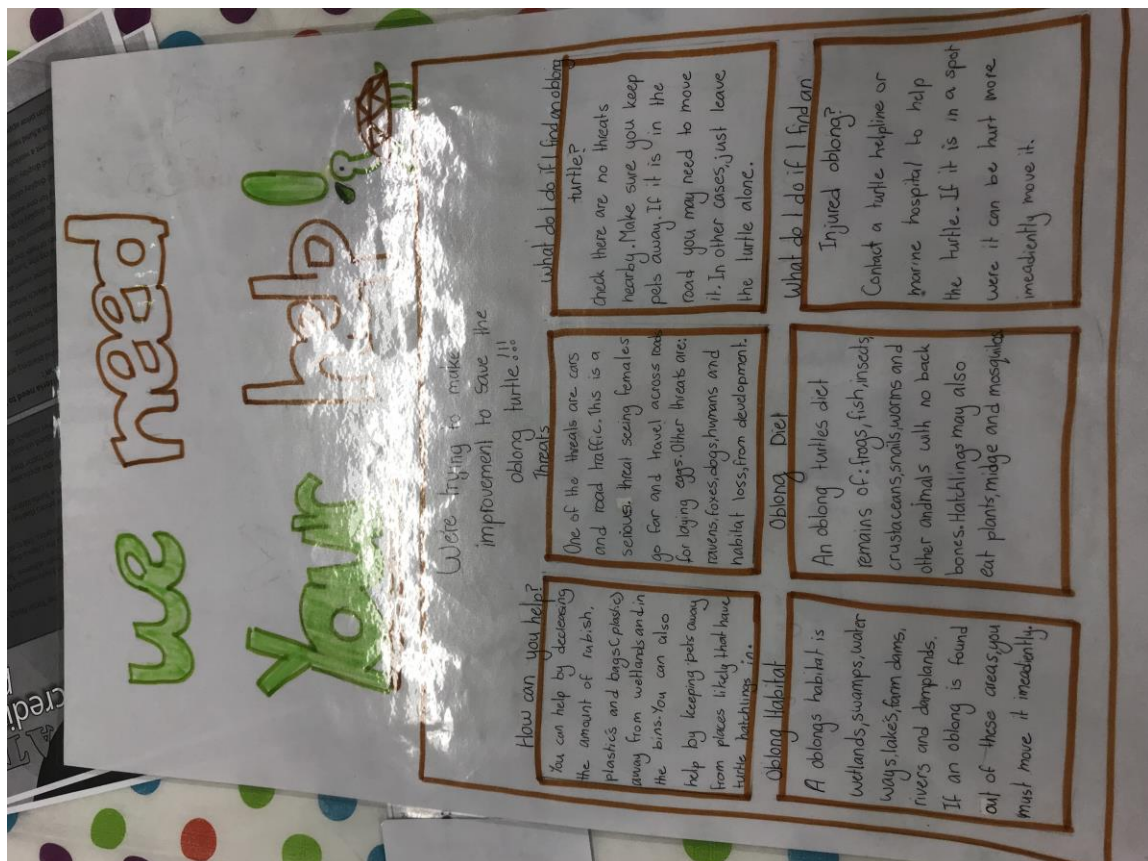 we need
Your help!
Were trying to make
improvement to save the
oblong turtle!!!
How can you help?
You can help by decreasing
the amount of rubish,
plastics and bags (plastic)
away from wetlands and in
the bins. You can also
help by keeping pets away
from places likely that have
turtle hatchlings in.
Threats
One of the threats are cars
and road traffic. This is a
serious threat seeing females
go far and travel across roads
for laying eggs. Other threats are:
ravens, foxes, dogs, humans and
habitat loss, from development.
What do I do if I find an oblong
turtle?
check there are no threats
nearby. Make sure you keep
pets away. If it is in the
road you may need to move
it. In other cases, just leave
the turtle alone.
Oblong Habitat
A oblongs habitat is
wetlands, swamps, water
ways, lakes, farm dams,
rivers and damplands.
If an oblong is found
out of these areas, you
must move it imeadently.
Oblong Diet
An oblong turtles diet
remains of: frogs, fish, insects,
crustaceans, snails, worms and
other andmals with no back
bones. Hatchlings may also
eat plants, midge and mosquitos
What do I do if I find an
Injured oblong?
Contact a turtle helpline or
marine hospital to help
the turtle. If it is in a spot
were it can be hurt more
imeadiently move it.